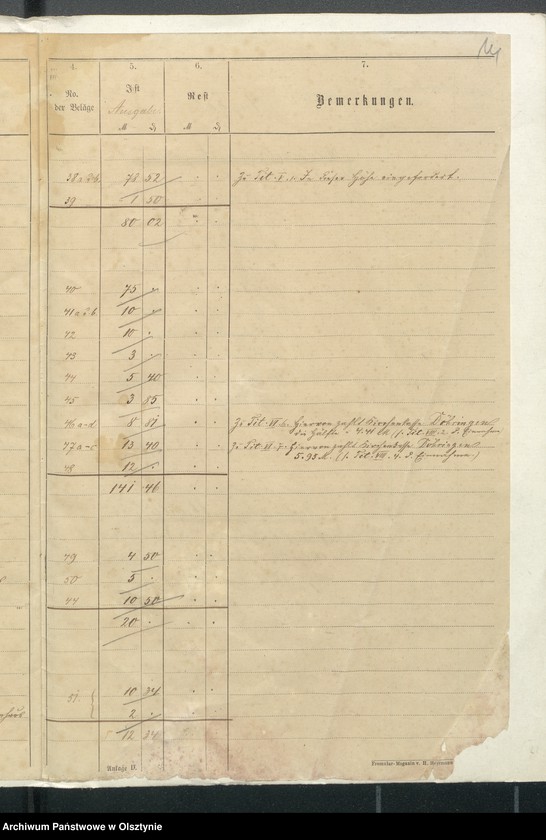 4. 5. 6. 7.
No. der Beläge Ist Ausgabe Rest Bemerkungen.
M ₰ M ₰
38 a u. b. 78 52 Zu Tit. V. 1. In dieser Höhe eingefordert.
39 1 50
80 02
40 75
41 a u. b. 10
42 10
43 3
44 5 40
45 3 85
46 a-d 8 81 Zu Tit. VI 6. Hiervon zahlt Kirchenkasse Döhringen
die Hälfte 4.41 M. (s. Tit. VIII. 2. d. Einnahme
47 a-c 13 40 Zu Tit. VI 7. Hiervon zahlt Kirchenkasse Döhringen
5.98 M. (s. Tit. VIII. 4. d. Einnahme.)
48 12
141 46
49 4 50
50 5
44 10 50
20
51. { 10 34
2
12 34
Anlage D.
Formular-Magazin v. H.
Archiwum Państwowe w Olsztynie